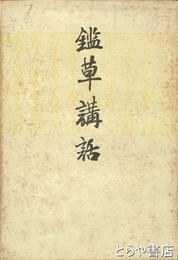 鑑草講話
古書 とらや書店